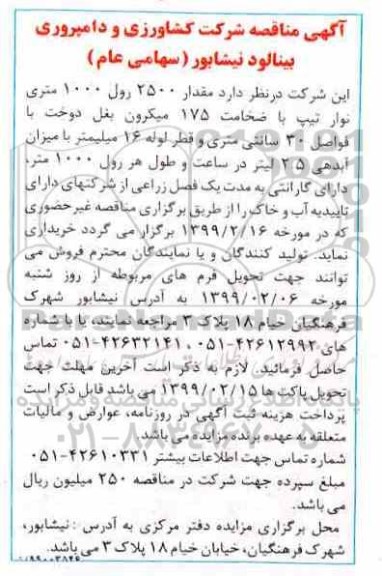 آگهی مناقصه شرکت کشاورزی و دامپروری
بینالود نیشابور (سهامی عام)
این شرکت درنظر دارد مقدار ۲۵۰۰ رول ۱۰۰۰ متری
نوار تیپ با ضخامت ۱۷۵ میکرون بغل دوخت با
فواصل ۳۰ سانتی متری و قطر لوله ۱۶ میلیمتر با میزان
آبدهی ۲۵ لیتر در ساعت و طول هر رول ۱۰۰۰ متر،
دارای گارانتی به مدت یک فصل زراعی از شرکتهای دارای
تاییدیه آب و خاک را از طریق برگزاری مناقصه غیرحضوری
که در مورخه ۱۳۹۹/۲/۱۶ برگزار می گردد خریداری
نماید. تولید کنندگان و یا نمایندگان محترم فروش می
توانند جهت تحویل فرم های مربوطه از روز شنبه
مورخه ۱۳۹۹/۰۲/۰۶ به آدرس نیشابور شهرک
فرهنگیان خیام ۱۸ پلاک ۳ مراجعه نمایند یا با شماره
های ۴۲۶۱۲۹۹۲-۰۵۱ ، ۴۲۶۳۲۱۴۱-۰۵۱ تماس
حاصل فرمائید. لازم به ذکر است آخرین مهلت جهت
تحویل پاکت ها ۱۳۹۹/۰۲/۱۵ می باشد قابل ذکر است
پرداخت هزینه ثبت آگهی در روزنامه، عوارض و مالیات
متعلقه به عهده برنده مزایده می باشد.
شماره تماس جهت اطلاعات بیشتر ۴۲۶۱۰۳۳۱-۰۵۱
مبلغ سپرده جهت شرکت در مناقصه ۲۵۰ میلیون ریال
می باشد.
محل برگزاری مزایده دفتر مرکزی به آدرس : نیشابور،
شهرک فرهنگیان، خیابان خیام ۱۸ پلاک ۳ می باشد.